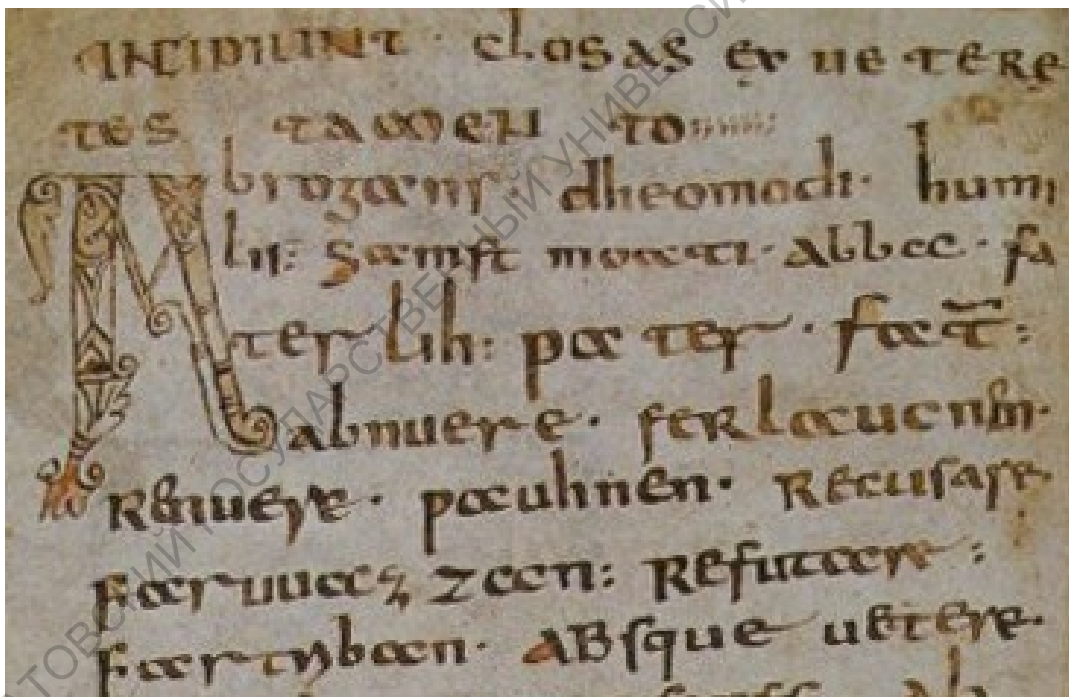 INCIPIUNT · CLOSAS EX UETERE
TES TAMEN TO
Abrogans · dheomodi · humi
lis: samft moati · abbæ · fa
ter lih: pater · fat̄ :
abnuere · ferlaucnen ·
Renuere · pauhnen · Recusare ·
faruuazzan: Refutare :
fartriban · ABsque uetere ·
ТОВСКИЙ ГОСУДАРСТВЕННЫЙ УНИВЕРСИ